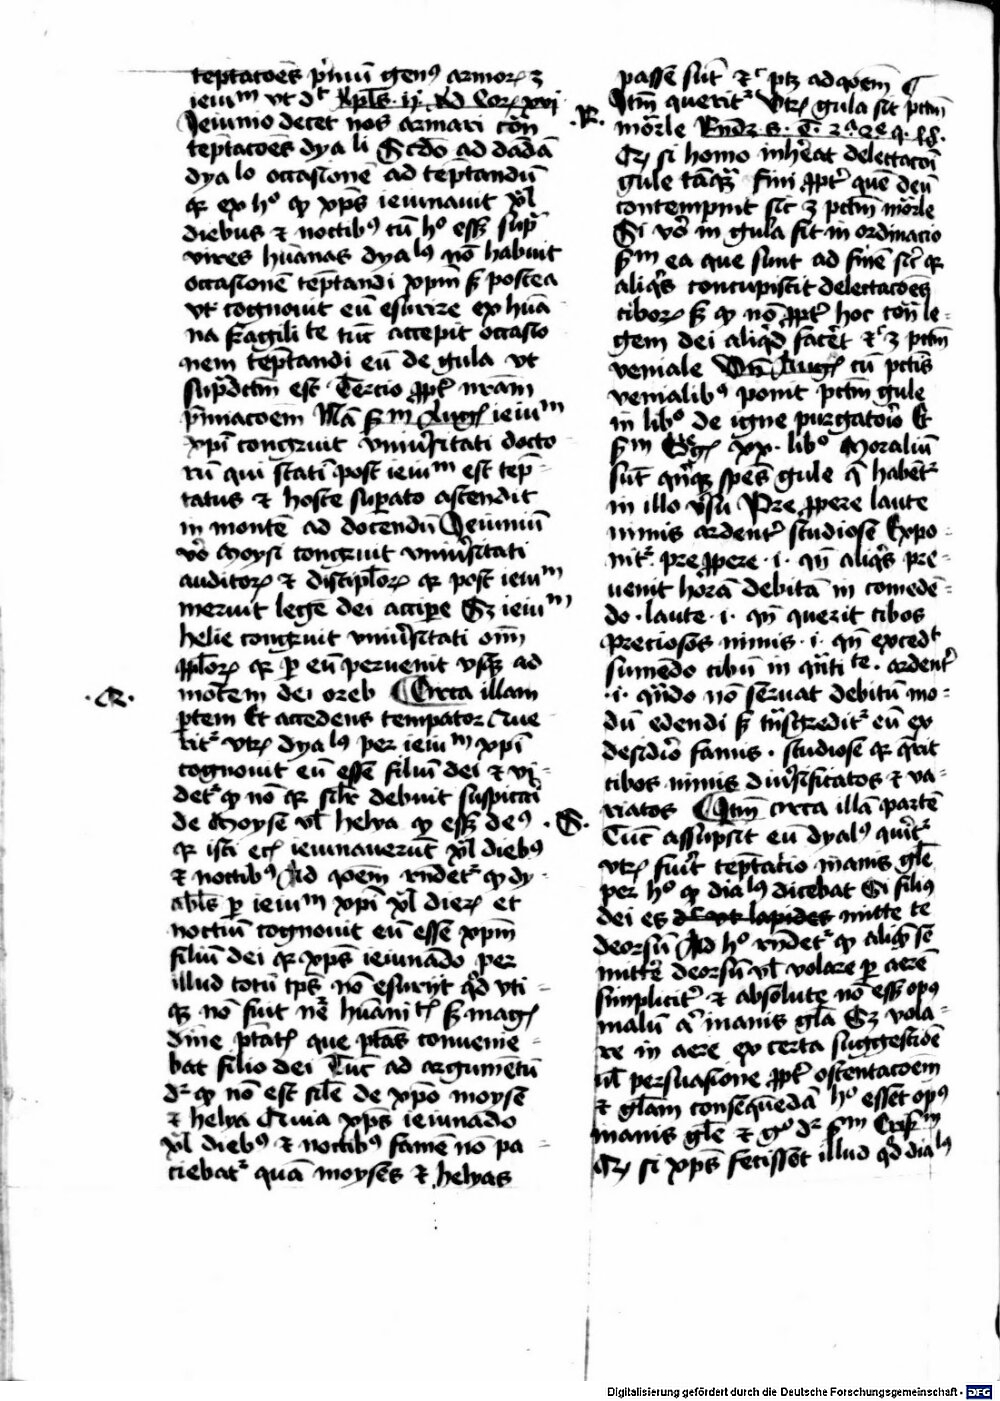 teptacōēs p̄miū genꝰ armoꝝ ʒ
ieiuᵐ vt dʳ Apl̄s · ij · Ad Coꝝ xvi
Jeiunio decet nos armari cōn̄
teptacōēs dya li Scd̄o ad dādā
dya lo occasionē ad tēptandū
qꝛ ex hᵒ ꝙ xp̄s ieiunauit xl
diebus ⁊ noctibꝰ cū hᵒ ess; sup̄
vires hūanas dyaˡᵘˢ nō habuit
occasionē tēptandi xp̄m s; postea
vt cognouit eū esurire ex huā
na fragili te tūc accepit occasio
nem tēptandi eū de gula vt
sup̄dctm̄ est Tercio ꝓpt̄ nr̄am
Nā sᵐ Augꝰ ieiuᵐ
xp̄i congruit vniūsitati docto
rū qui statī post ieiuᵐ est tēp-
tatus ⁊ hoste supato ascendit
in montē ad docendū Jeiuniū
vō Moysi congruit vniūsitati
auditoꝝ ⁊ discipl̄oꝝ qꝛ post ieiuᵐ
meruit legē dei accipe Sʒ ieiuᵐ
helie congruit vniūsitati om̄
ppl̄oꝝ qꝛ p eū peruenit vsqꝫ ad
mōtem dei oreb Circa illam
· Q · ptem Et accedens temptatoꝛ Que
ritᵉ vtꝝ dyaˡᵘˢ per ieiuᵐ xp̄i
cognouit eū esse filiū dei ⁊ vi-
detᵉ ꝙ nō qꝛ sil̄r debuit suspicari
de Moyse vl̄ helya ꝙ ess; deꝰ
qꝛ isti ecī ieiunauerūt xl diebꝰ
⁊ noctibꝰ Ad qōem rn̄detᵉ ꝙ dy-
abl̄s p ieiuᵐ xp̄i xl dieꝝ et
noctiū cognouit eū esse xp̄m
filiū dei qꝛ xp̄s ieiunādo per
illud totū tp̄s nō esurijt qd̄ vti-
qꝫ nō fuit nr̄e hūani t; s; mag
dīne ptāt; que ptās conuenie-
bat filio dei Tūc ad argumētū
dʳ ꝙ nō est sil̄e de xp̄o moyse
⁊ helya Quia xp̄s ieiunādo
xl diebꝰ ⁊ noctibꝰ famē nō pa-
ciebatᵉ quā moyses ⁊ helyas
passe sūt ⁊ᶜ ptʒ ad qōem
Jtm̄ queritᵉ Vtꝝ gula sit pctm̄
· R · mōrle Rn̄dʒ s. T. 2ᵃ. 2ᵉ q.
Qꝝ si homo inhēat delectacōi
gule tāqʒ fini ꝓpt̄ quē deū
contempnit sic ʒ pctm̄ mōrle
Si vō in gula sit in ordinacio
sᵐ ea que sunt ad finē sic qꝛ
aliqˢ concupiscit delectacōēs
ciboꝝ s; ꝙ nō ꝓpt̄ hoc con̄ le-
gem dei aliqd̄ facēt tᶜ ʒ pctm̄
veniale Vn̄ Augꝰ cū pctīs
venialibꝰ ponit pctm̄ gule
in libᵒ de igne purgatoꝛio Et
sᵐ Greg xx · libᵒ Moraliū
sūt qn̄qʒ spēs gule q̄ habētᵉ
in illo v̄su Pre ꝓpere laute
nimis ardent̄ studiose Expo-
nitᵉ pre ꝓpere · i · qn̄ aliqˢ pre-
uenit hōrā debitā in comedē-
do · laute · i · qn̄ querit cibos
preciosos nimis · i · qn̄ exced;
sumēdo cibū in qn̄ti te · ardent̄
· i · qn̄do nō seruat debitū mo-
dū edendi s; tn̄sgreditᵉ eū ex
desidio famis · studiose qꝛ querit
cibos nimis diūsificatos ⁊ va-
riatos Jtm̄ circa illā partē
· S · Tūc assūpsit eū dyalꝰ qurⁱᵗ
vtꝝ fuit tēptacio inanis gl̄e
per hᵒ ꝙ diaˡᵘˢ dicebat Si filiꝰ
dei es dic vt lapides mitte te
deorsū Ad hᵒ rn̄detᵉ ꝙ aliqd̄ se
mittē deorsū vl̄ volare p aerē
simplicit̄ ⁊ absolute nō ess; opꝰ
malū aᵗ inanis gl̄a Sʒ vola-
re in aere ex certa suggestiōe
vl̄ persuasione ꝓpt̄ ostentacōem
⁊ gl̄am consequēdā hᵒ esset opꝰ
inanis gl̄e ⁊ gᵒ dʳ sᵐ Crisᵐ
Qꝝ si xp̄s fecissēt illud qd̄ diaˡᵘˢ
Digitalisierung gefördert durch die Deutsche Forschungsgemeinschaft · DFG